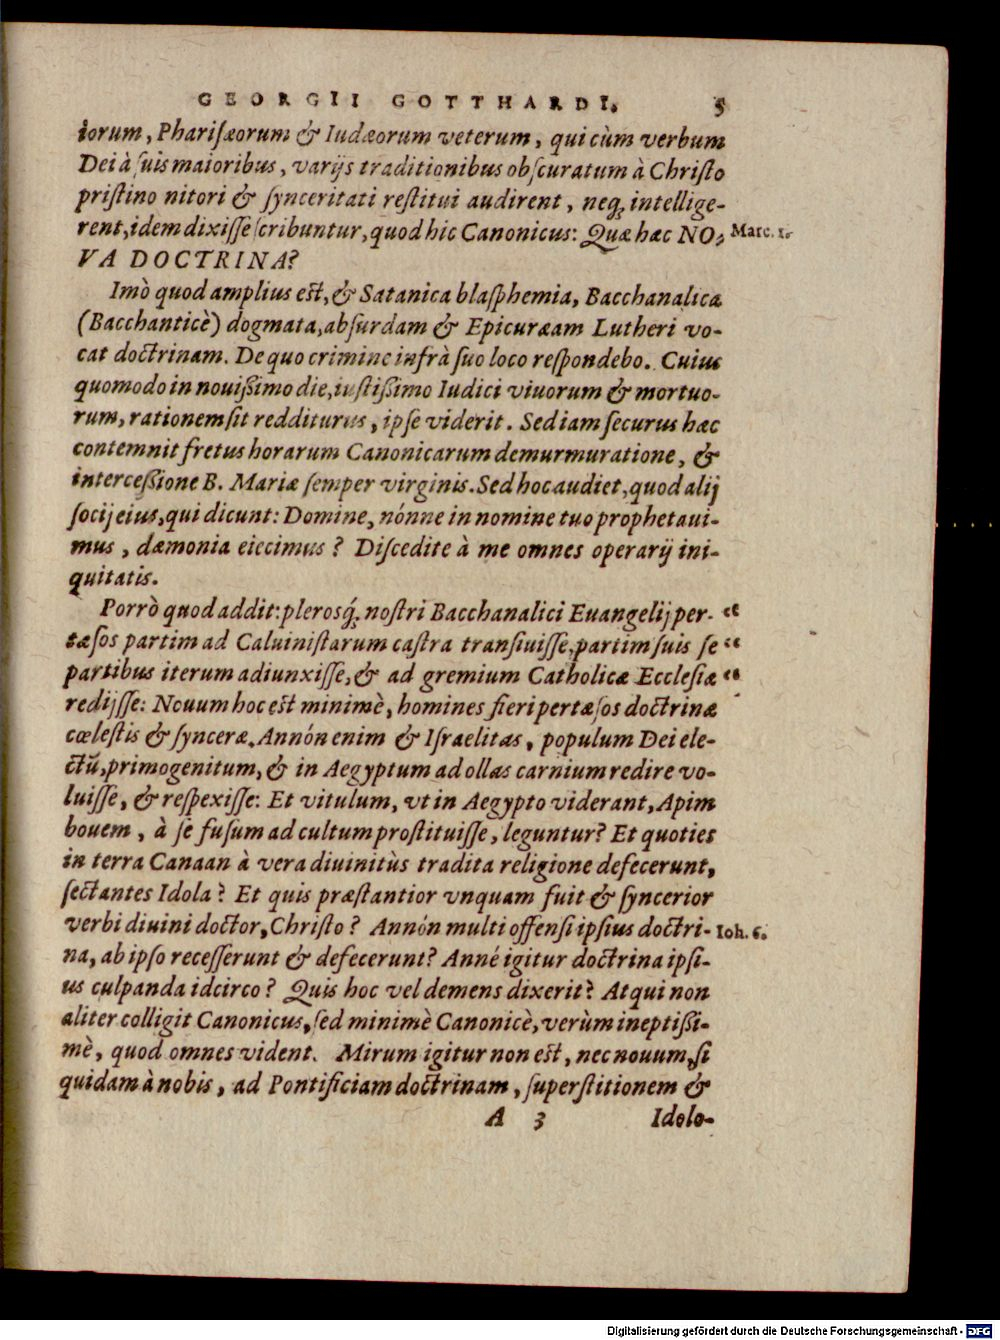 GEORGII GOTTHARDI. 5
iorum, Phariſæorum & Iudæorum veterum, qui cùm verbum
Dei à ſuis maioribus, varijs traditionibus obſcuratum à Chriſto
priſtino nitori & ſynceritati reſtitui audirent, neq; intellige-
rent, idem dixiſſe ſcribuntur, quod hic Canonicus: Quæ hæc NO- Marc. 1.
VA DOCTRINA?
Imò quod amplius eſt, & Satanica blaſphemia, Bacchanalica
(Bacchanticè) dogmata, abſurdam & Epicuræam Lutheri vo-
cat doctrinam. De quo crimine infrà ſuo loco reſpondebo. Cuius
quomodo in nouißimo die, iuſtißimo Iudici viuorum & mortuo-
rum, rationem ſit redditurus, ipſe viderit. Sed iam ſecurus hæc
contemnit fretus horarum Canonicarum demurmuratione, &
interceßione B. Mariæ ſemper virginis. Sed hoc audiet, quod alij
ſocij eius, qui dicunt: Domine, nónne in nomine tuo prophetaui-
mus, dæmonia eiecimus? Diſcedite à me omnes operarij ini-
quitatis.
Porrò quod addit: plerosq́; noſtri Bacchanalici Euangelij per- “
tæſos partim ad Caluiniſtarum caſtra tranſiuiſſe, partim ſuis ſe “
partibus iterum adiunxiſſe, & ad gremium Catholicæ Eccleſiæ “
redijſſe: Nouum hoc eſt minimè, homines fieri pertæſos doctrinæ
cœleſtis & ſynceræ. Annón enim & Iſraelitas, populum Dei ele-
ctũ, primogenitum, & in Aegyptum ad ollas carnium redire vo-
luiſſe, & reſpexiſſe: Et vitulum, vt in Aegypto viderant, Apim
bouem, à ſe fuſum ad cultum proſtituiſſe, leguntur? Et quoties
in terra Canaan à vera diuinitùs tradita religione defecerunt,
ſectantes Idola? Et quis præſtantior vnquam fuit & ſyncerior
verbi diuini doctor, Chriſto? Annón multi offenſi ipſius doctri- Ioh. 6.
na, ab ipſo receſſerunt & defecerunt? Anné igitur doctrina ipſi-
us culpanda idcirco? Quis hoc vel demens dixerit? Atqui non
aliter colligit Canonicus, ſed minimè Canonicè, verùm ineptißi-
mè, quod omnes vident. Mirum igitur non eſt, nec nouum, ſi
quidam à nobis, ad Pontificiam doctrinam, ſuperſtitionem &
A 3 Idolo-
Digitalisierung gefördert durch die Deutsche Forschungsgemeinschaft - DFG